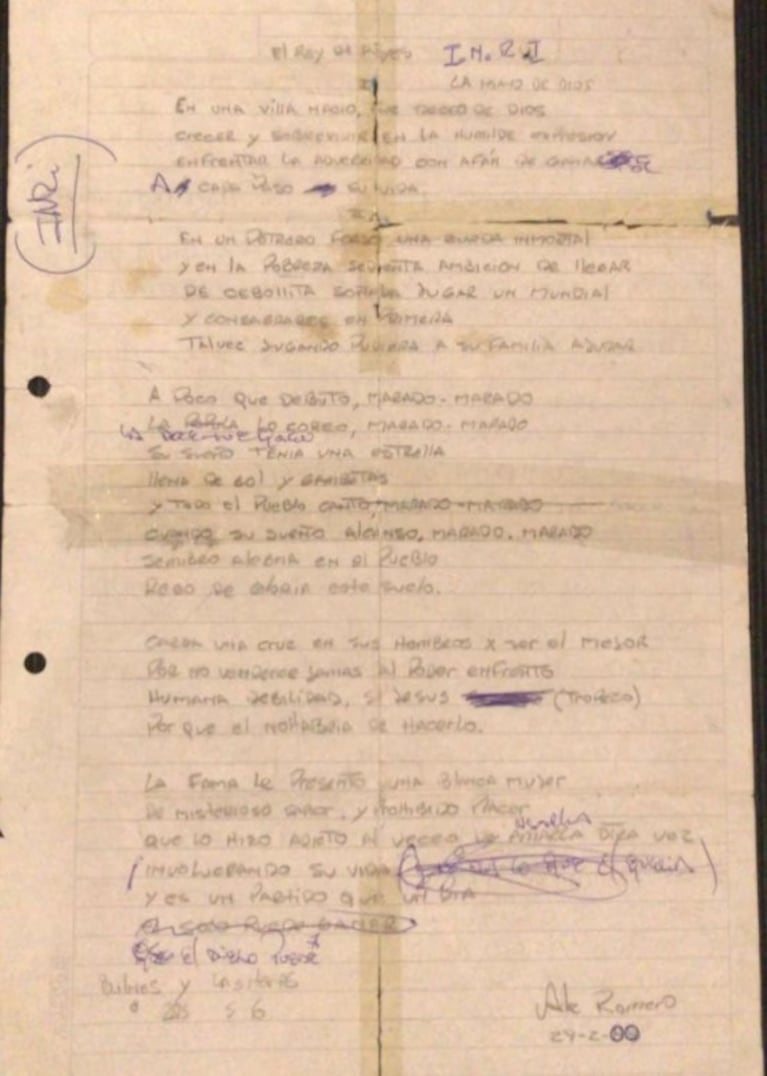 El Rey de
I.N.R.I
LA MANO DE DIOS
(INRi)
EN UNA VillA NACIO, FUE DESEO DE DIOS
CRECER y SOBREVIVIR EN LA HUMILDE EXPRESION
ENFRENTAR LA ADVERSIDAD CON AFÁN DE
A CADA PASO SU VIDA.
EN UN POTRERO FORJO UNA ZURDA INMORTAL
y EN la POBREZA SEDIENTA AMBICION DE llEGAR
DE CEBOLLITA SOÑABA JUGAR UN MUNDIAl
Y CONSAGRARSE EN PRIMERA
TALVEZ JUGANDO PUDIERA A SU FAMILIA AYUDAR
A POCO QUE DEBUTO, MARADO-MARADO
LA LO COREO, MARADO-MARADO
LA
SU SUEÑO TENIA UNA ESTRELLA
llENA DE GOl Y GAMBETAS
y TODO el PUEBLO CANTO, MARADO-MARADO
CUANDO SU SUEÑO AlCANSO, MARADO.MARADO
SEMBRO ALEGRIA EN El PUEBlo
REGO DE GlORIA este SUElo.
CARGA UNA CRUZ EN SUS HOMBROS X SER El MEJOR
POR NO VENDERCE JAMAS Al PODER ENFRENTO
HUMANA DEBILIDAD, SI JESUS (TROPEZO)
POR QUE El NO HABRIA DE HACERLO.
LA FAMA le PRESENTO UNA BlANCA MUJER
DE MISTERIOSO SABOR, Y PROHIBIDO PlACER
QUE LO HIZO ADICTO Al DESEO DE OTRA VEZ
INVOLUCRANDO SU VIDA
Y ES UN PARTIDO QUE UN DIA
El Diego
y
Ale Romero
29-2-00